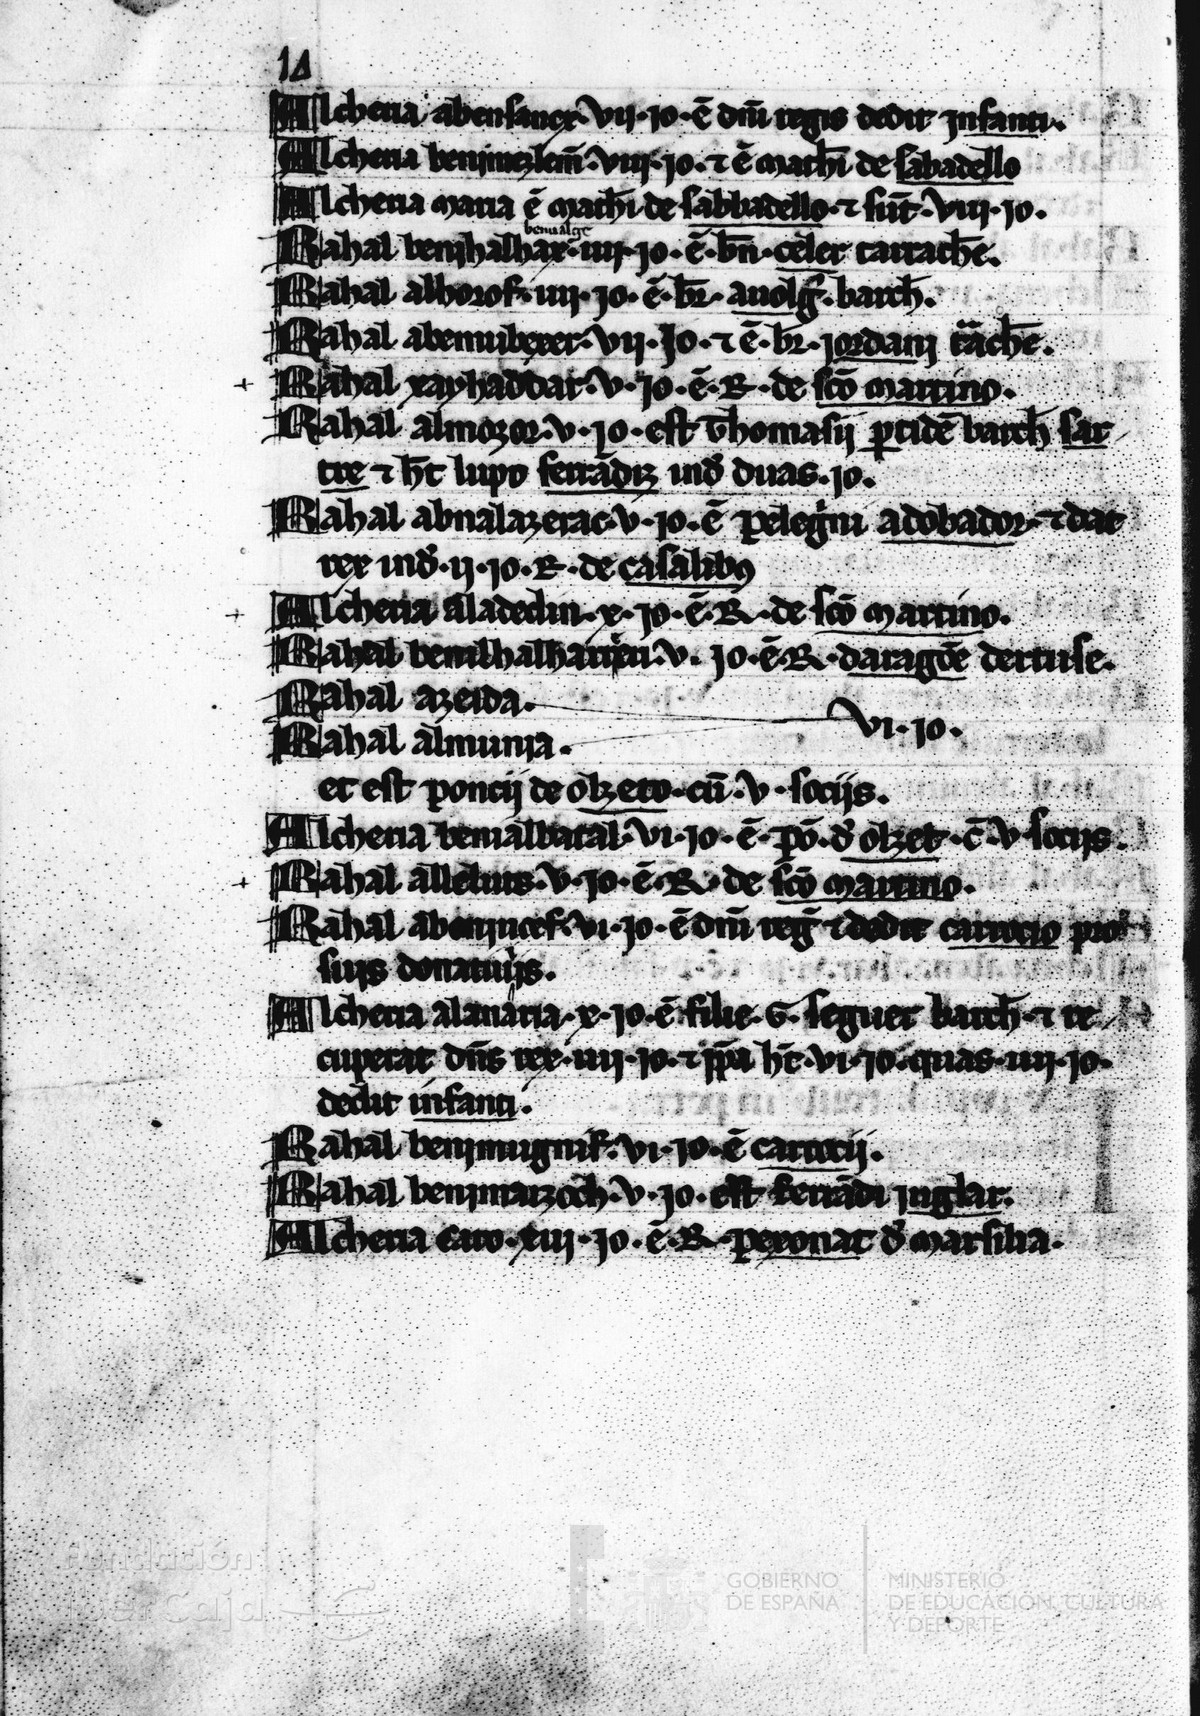 14
Alcheria abensauer. VII. Jo. ē dn̄i regis dedit Jnfanti.
Alcheria benimezlem̄. VIII. Jo. ⁊ ē mathi de sabadello
Alcheria maria ē mathi de sabbadello. ⁊ sūt. VIII. Jo.
Rahal benjhalhax. IIII. Jo. ē. bn̄. celer tarrachōe.
Rahal alhorof. IIII. Jo. ē. br̄. barch̄.
Rahal VII. Jo. ⁊ ē. br̄. Jordanj
+ Rahal xayhaddar. V. Jo. ē. R. de sc̄o martino.
Rahal almozor. V. Jo. est thomasij barch̄ sar
tre ⁊ h̄t lupo ferrādiz ind̄ duas. Jo.
Rahal abnalazerac. V. Jo. ē pelegrini adobador. ⁊ dat
rex ind̄. IJ. Jo. R. de casalibꝯ
+ Alcheria aladedin. X. Jo. ē. R. de sc̄o martino.
Rahal V. Jo. ē. R. daragōe dertuse.
Rahal azeida.
VI. Jo.
Rahal almunja.
et est poncij de olzeto. cū. V. socijs.
Alcheria benialbatal. VI. Jo. ē. pō. d̄ olzet. c̄. V socijs.
+ Rahal V. Jo. ē. R. de sc̄o martino.
Rahal abenjucef. VI. Jo. ē dn̄i reḡ ⁊ dedit carrocio pro
suis donatiuis.
Alcheria X. Jo. ē filie. G. seguer barch̄. ⁊ re
cuperat dn̄s rex. IIII. Jo. ⁊ jp̄a h̄t. VI. Jo. quas. IIII. Jo.
dedit infanti.
Rahal benjmugnif. VI. Jo. ē carrocij.
Rahal benimarzoch. V. Jo. est ferrādi juglar.
Alcheria XIII. Jo. ē. R. peyronat d̄ marsilia.
Fundación
iberCaja
GOBIERNO
DE ESPAÑA
MINISTERIO
DE EDUCACIÓN, CULTURA
Y DEPORTE